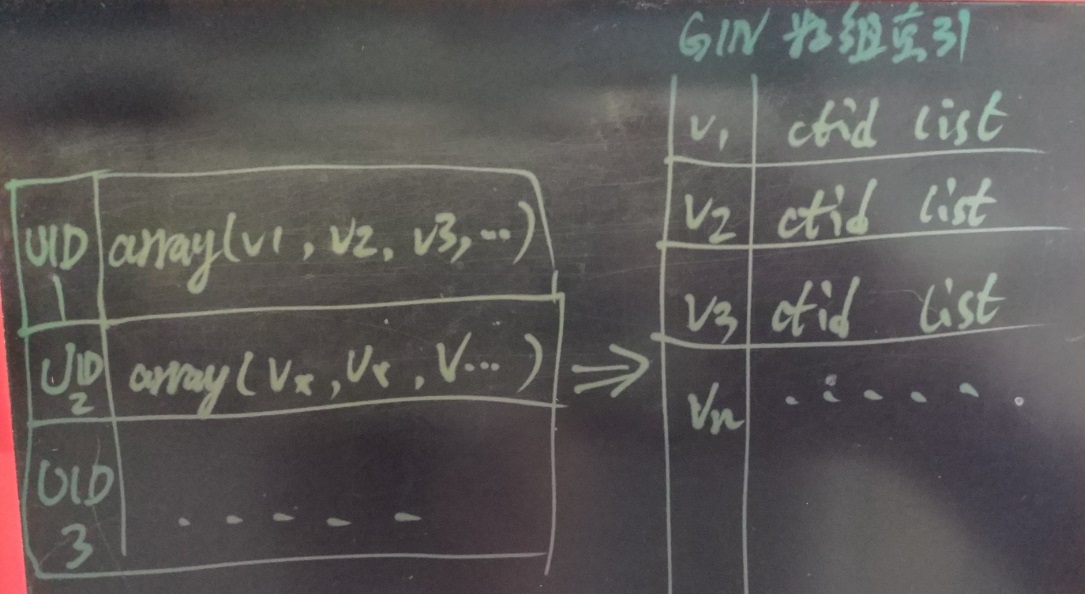 GIN 数组索引
UID 1 array(v1, v2, v3, ...)
UID 2 array(Vx, Vx, V...)
UID 3 .....
V1 ctid list
V2 ctid list
V3 ctid list
Vn ......